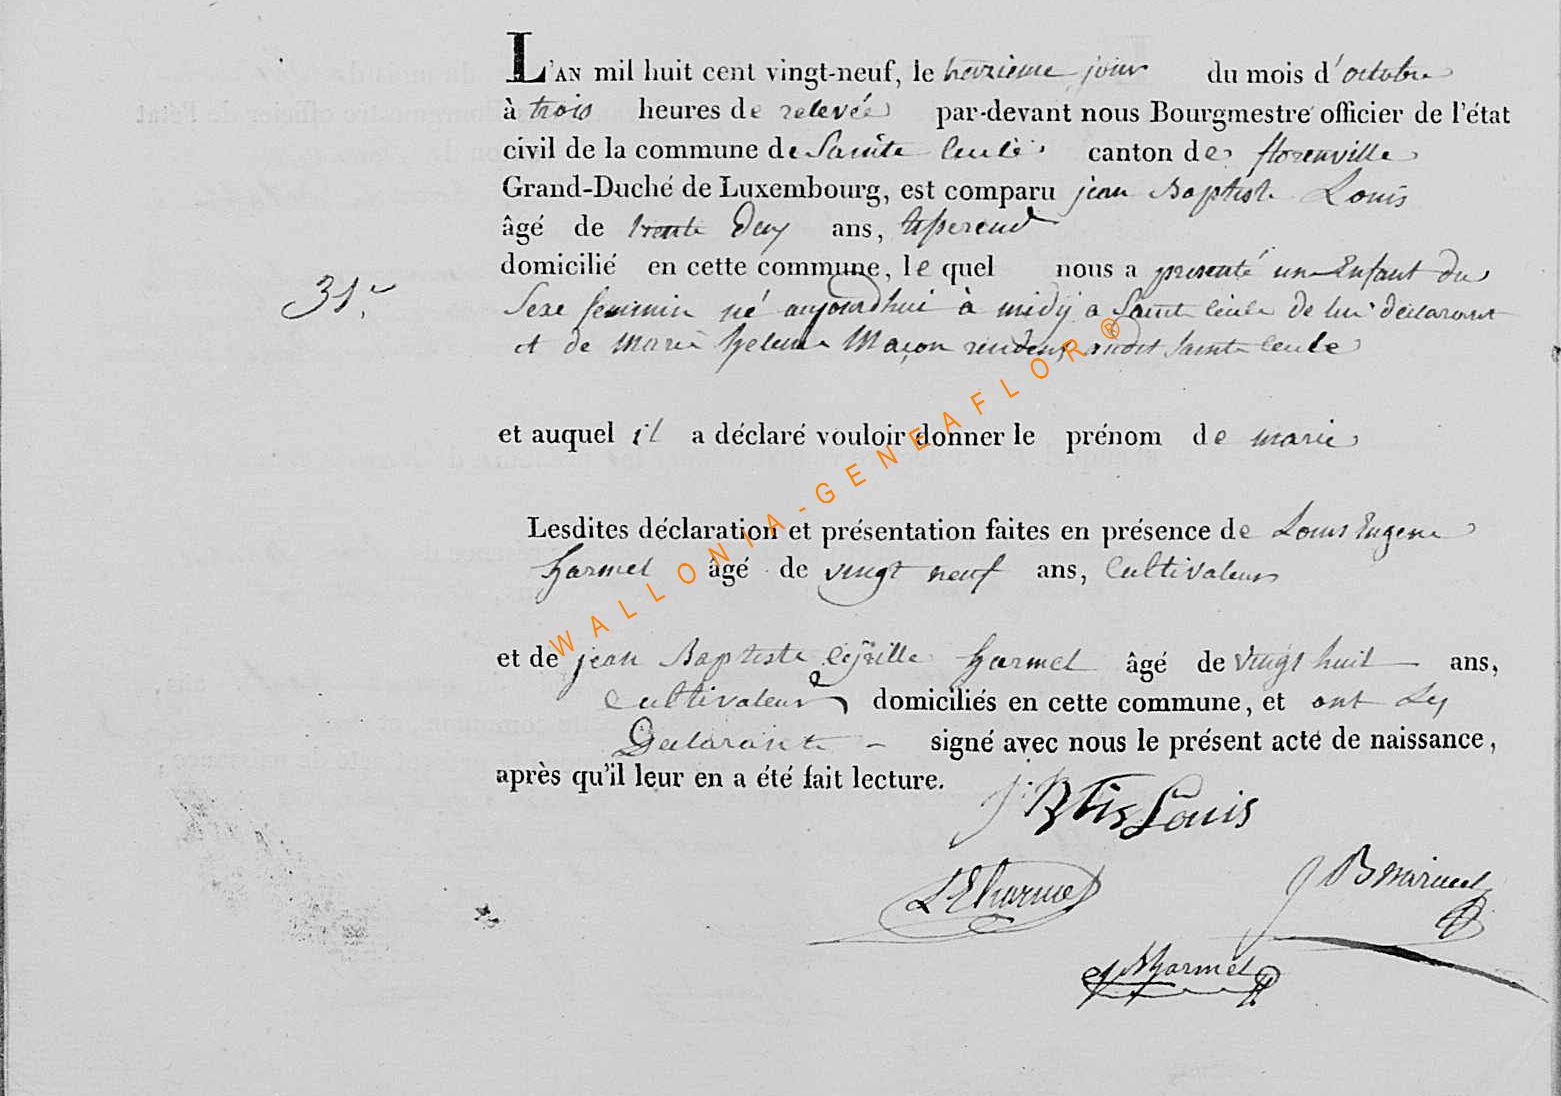 L'AN mil huit cent vingt-neuf, le jour du mois d'octobre
à trois heures de relevée par-devant nous Bourgmestre officier de l'état
civil de la commune de Sainte Cecile canton de florenville
Grand-Duché de Luxembourg, est comparu jean Baptiste Louis
âgé de trente deux ans, tisserend
domicilié en cette commune, le quel nous a presenté un Enfant du
31.e
Sexe feminin né aujourdhui à midÿ a Sainte Cecile de lui declarant
et de Marie helene Maçon audit Sainte Cecile
et auquel il a déclaré vouloir donner le prénom de marie
Lesdites déclaration et présentation faites en présence de Louis Eugene
harmel âgé de vingt neuf ans, Cultivateur
et de jean Baptiste harmel âgé de vingt huit ans,
Cultivateur domiciliés en cette commune, et ont Les
Declarants signé avec nous le présent acte de naissance,
après qu'il leur en a été fait lecture.
J. Btis Louis
L E harmel
J B
J B harmel
WALLONIA-GENEAFLOR®